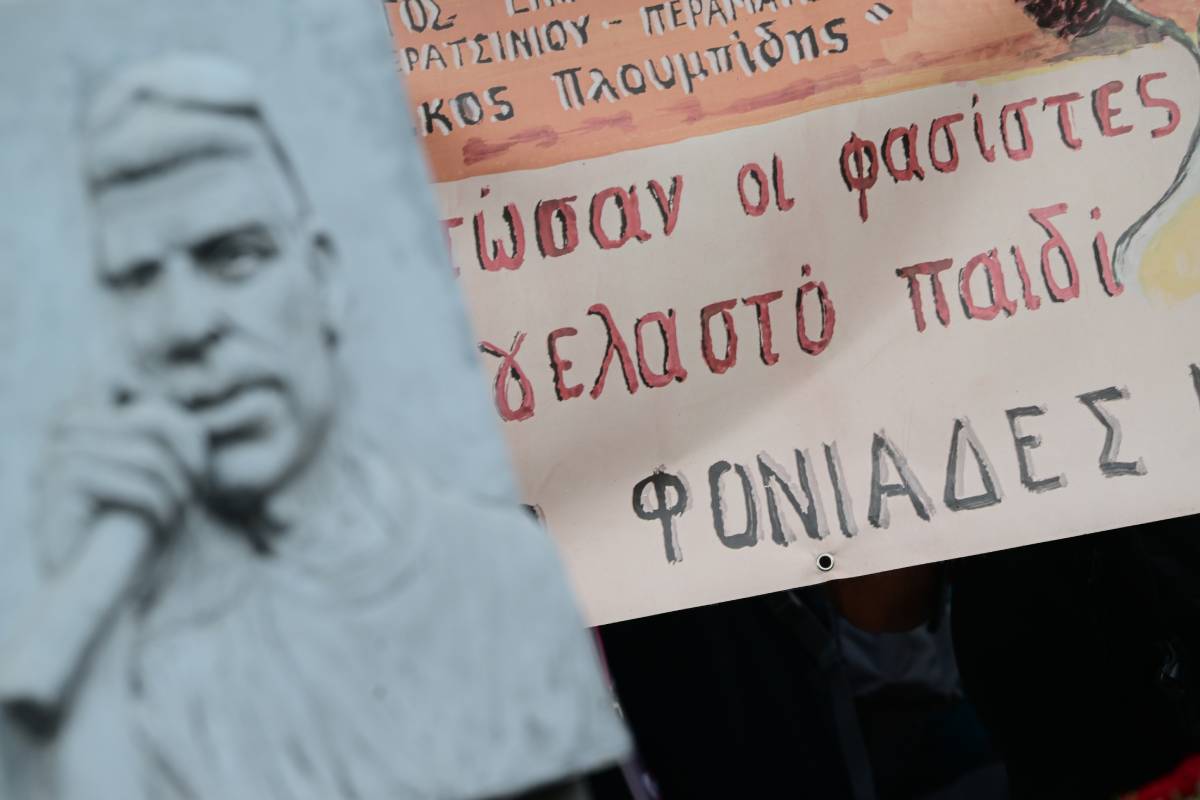 ΡΑΤΣΙΝΙΟΥ - ΠΕΡΑΜΑ
κος Πλουμπίδης"
τώσαν οι φασίστες
γελαστό παιδί
ΦΟΝΙΑΔΕΣ